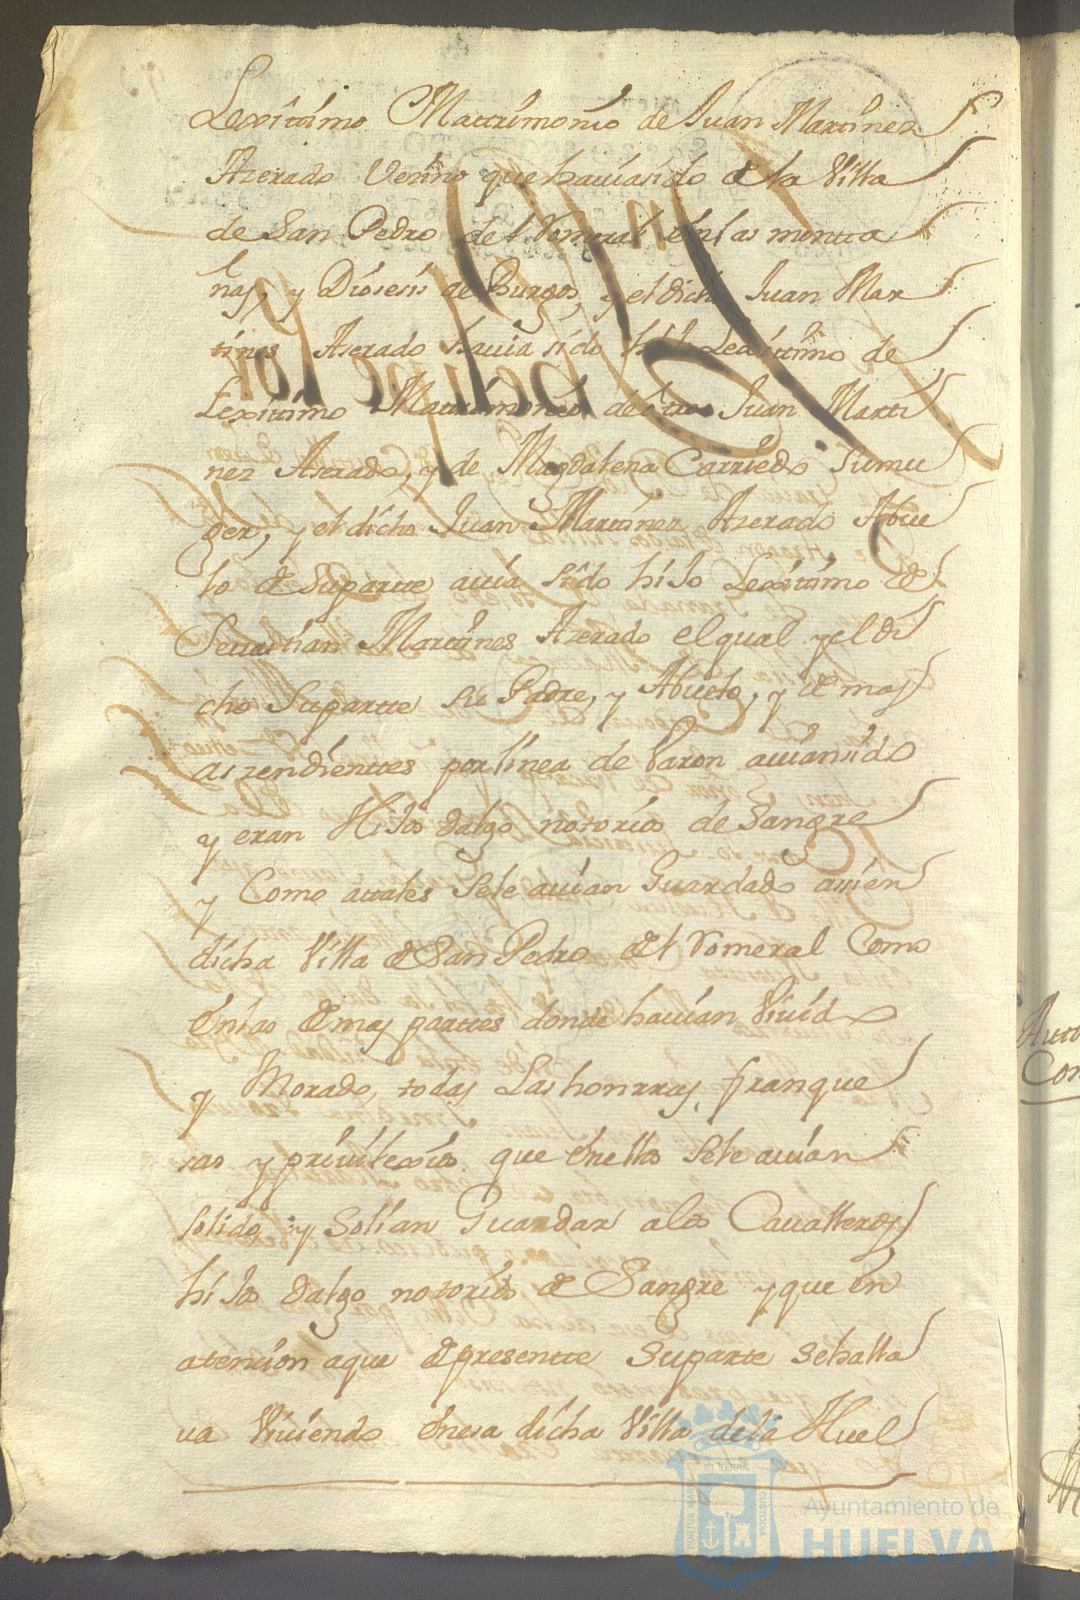 Lexitimo Matrimonio de Juan Martinez
Azerado Vezino que hauia sido de la Villa
de San Pedro del Romeral en las monta
ñas, y Diosesis de Burgos, y el dicho Juan Mar
tines Aserado hauia sido hijo Lexittimo de
Lexittimo Matrimonio de otro Juan Marti
nez Aserado, y de Magdalena Carriedo Sumu
ger, y el dicho Juan Martinez Azerado Abue
lo de Suparte auia sido hijo Lexitimo de
Seuastian Martines Azerado el qual y el di
cho Suparte su Padre, y Abuelo, y de mas
aszendientes por linea de Varon auian sido
y eran Hijos dalgo notorios de Sangre
y Como attales Sele auian Guardado assi en
dicha Villa de San Pedro del Romeral Como
en las demas parttes donde hauian Viuido
y Morado, todas Las honrras, franque
sas y priuilexios que en ellas Sele auian
Solido, y Solian Guardar a los Caualleros
hijos dalgo notorios de Sangre y que en
atencion a que depresentte Suparte Sehalla
ua Viuiendo en esa dicha Villa de la Huel
Ayuntamiento de
HUELVA